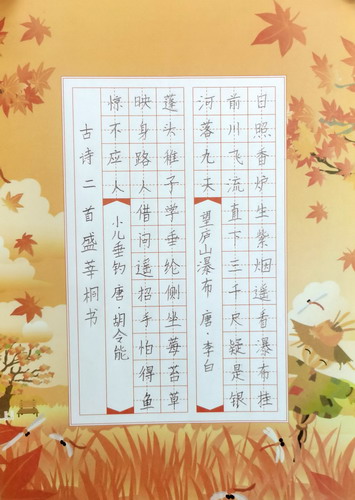 日照香炉生紫烟遥看瀑布挂
前川飞流直下三千尺疑是银
河落九天 望庐山瀑布 唐·李白
蓬头稚子学垂纶侧坐莓苔草
映身路人借问遥招手怕得鱼
惊不应人 小儿垂钓 唐·胡令能
古诗二首盛莘桐书